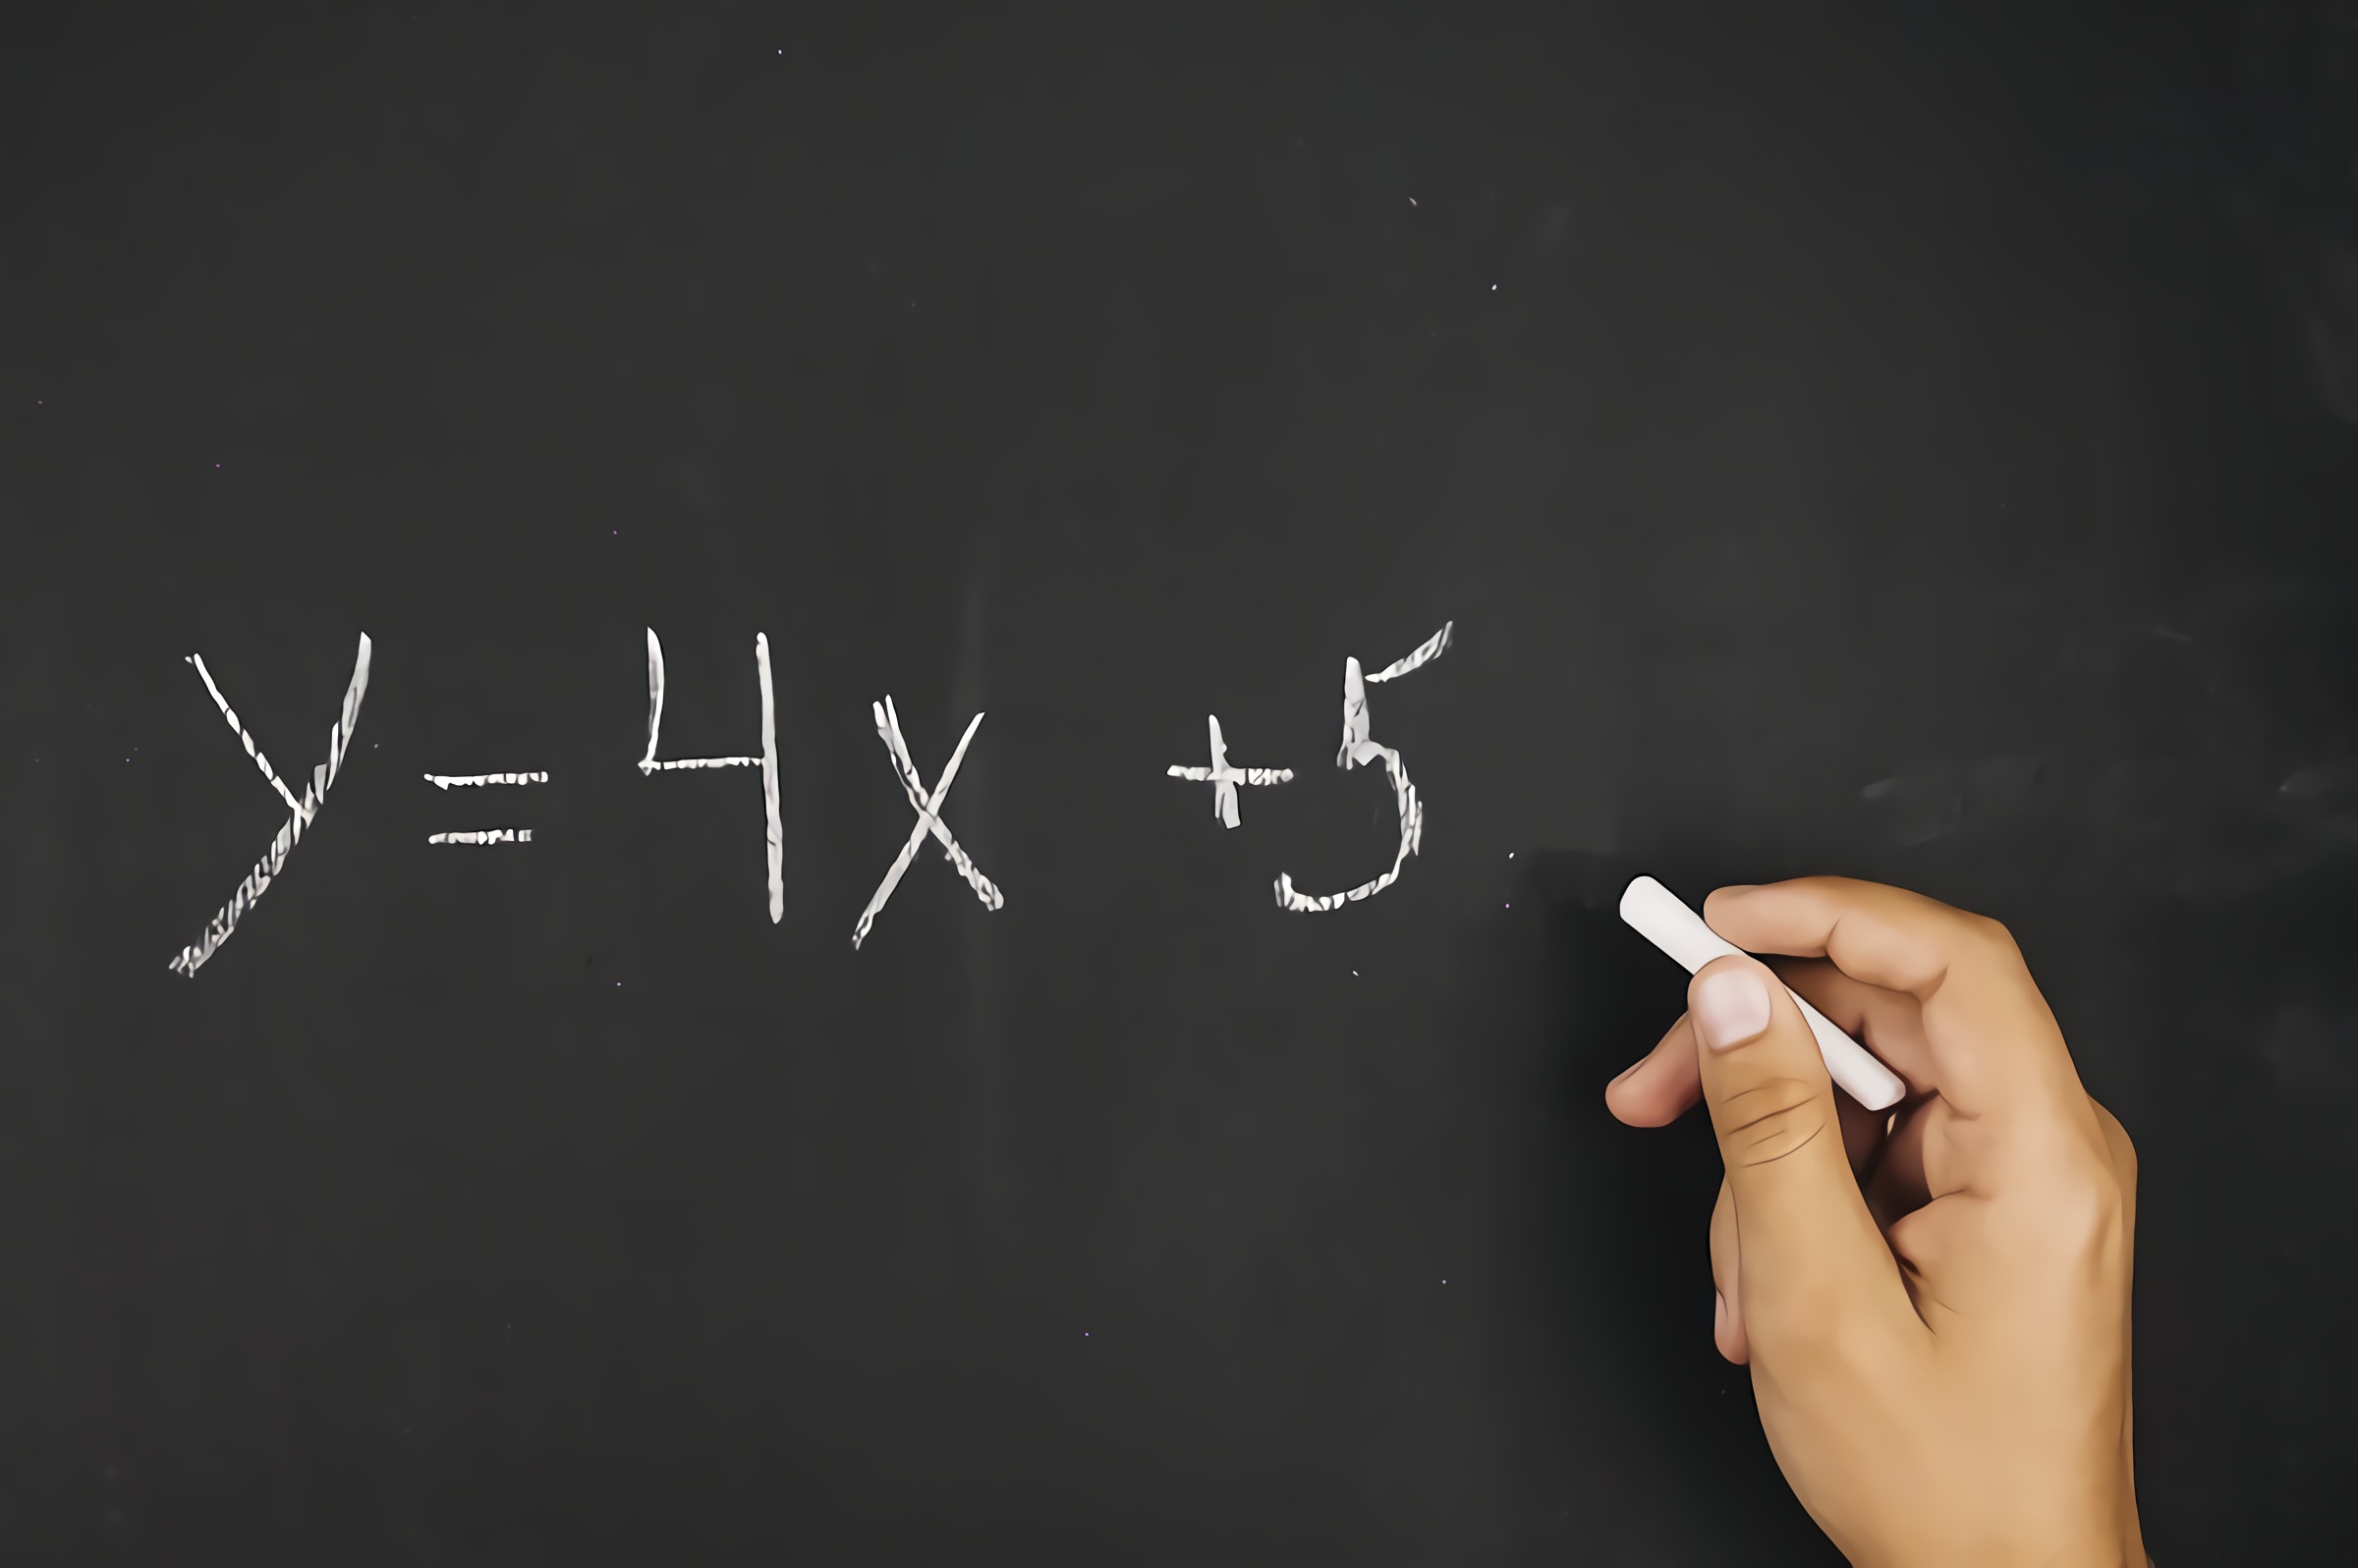 y=4x +5